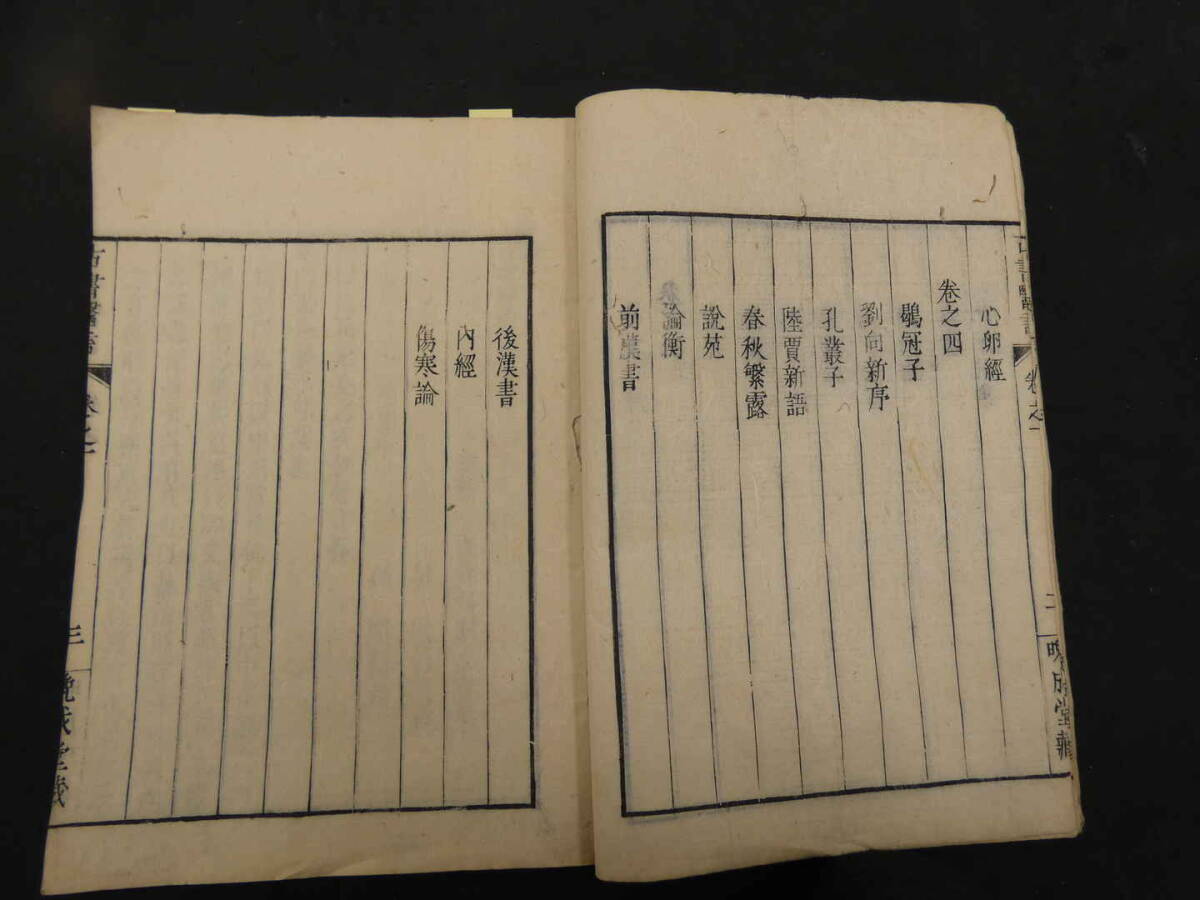 心卵經
卷之四
鶡冠子
劉向新序
孔叢子
陸賈新語
春秋繁露
說苑
論衡
前漢書
二
後漢書
內經
傷寒論
古書醫言
卷之一
三
晚成堂藏